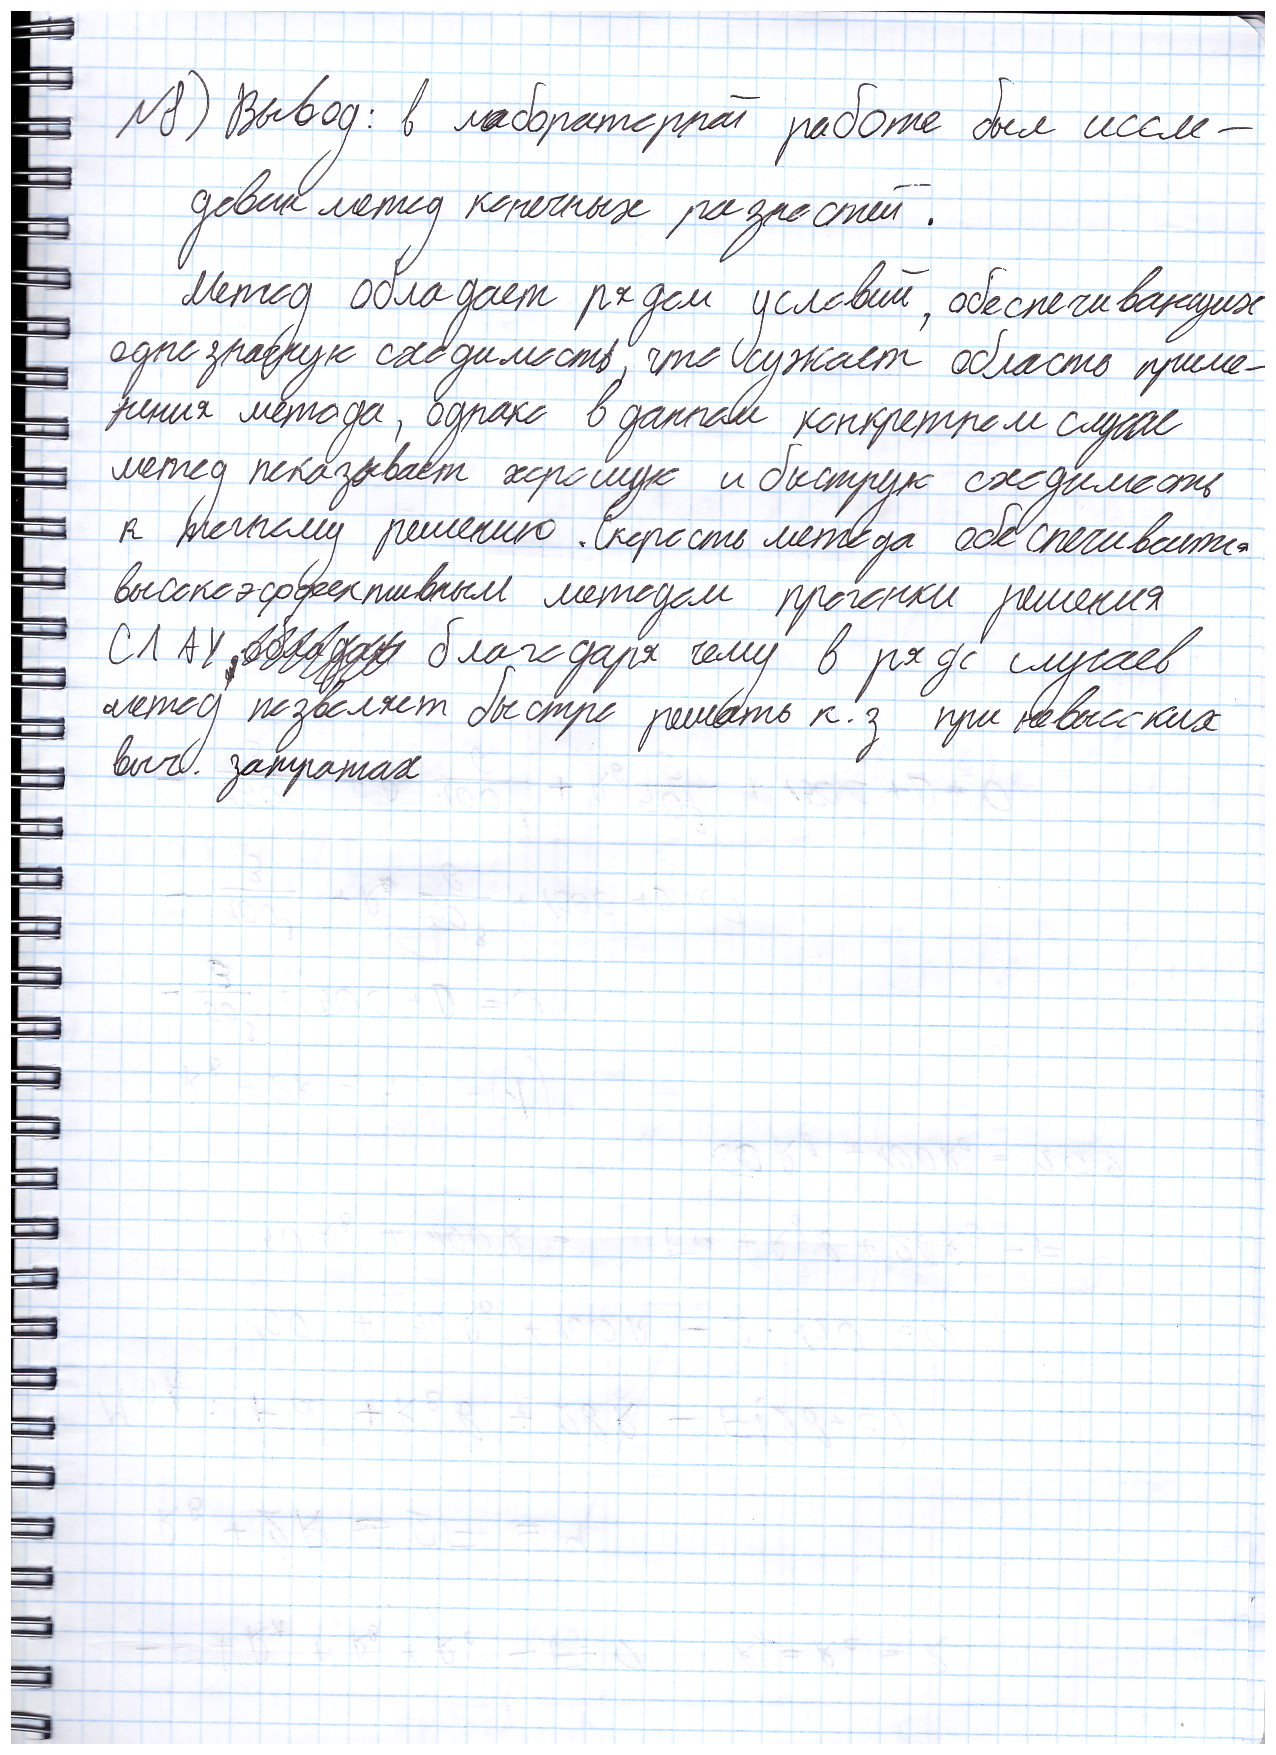 №8) Вывод: в лабораторной работе был иссле-
дован метод конечных разностей.
Метод обладает рядом условий, обеспечивающих
однозначную сходимость, что сужает область приме-
нения метода, однако в данном конкретном случае
метод показывает хорошую и быструю сходимость
к точному решению. Скорость метода обеспечивается
высокоэффективным методом прогонки решения
СЛАУ, благодаря чему в ряде случаев
метод позволяет быстро решать к.з при невысоких
выч. затратах